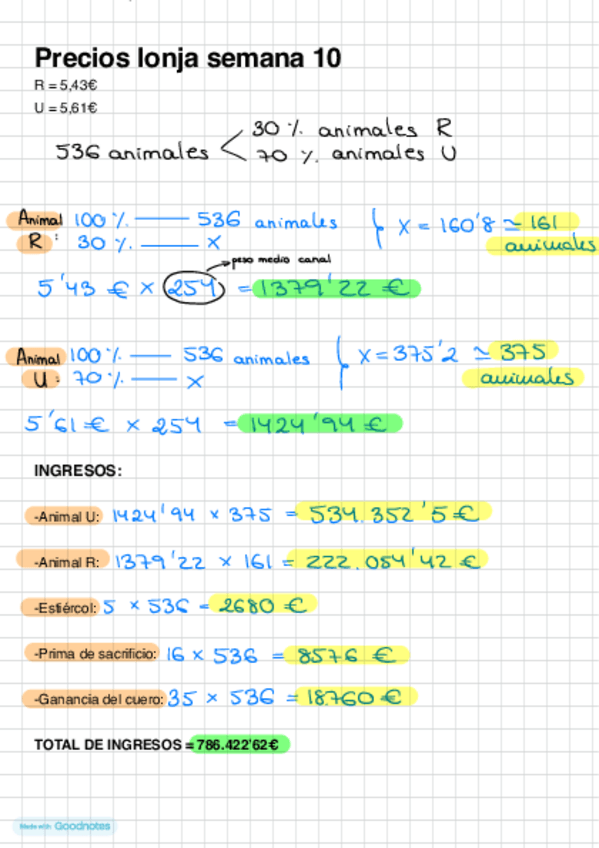 Precios lonja semana 10
R = 5,43€
U = 5,61€
536 animales < 30 % animales R
70 % animales U
Animal 100 % — 536 animales } X = 160'8 ≃ 161
R : 30 % — X animales
peso medio canal
5'43 € × 254 = 1379'22 €
Animal 100 % — 536 animales } X = 375'2 ≃ 375
U : 70 % — X animales
5'61 € × 254 = 1424'94 €
INGRESOS:
-Animal U: 1424'94 × 375 = 534.352'5 €
-Animal R: 1379'22 × 161 = 222.054'42 €
-Estiércol: 5 × 536 = 2680 €
-Prima de sacrificio: 16 × 536 = 8576 €
-Ganancia del cuero: 35 × 536 = 18.760 €
TOTAL DE INGRESOS = 786.422'62€
Made with Goodnotes